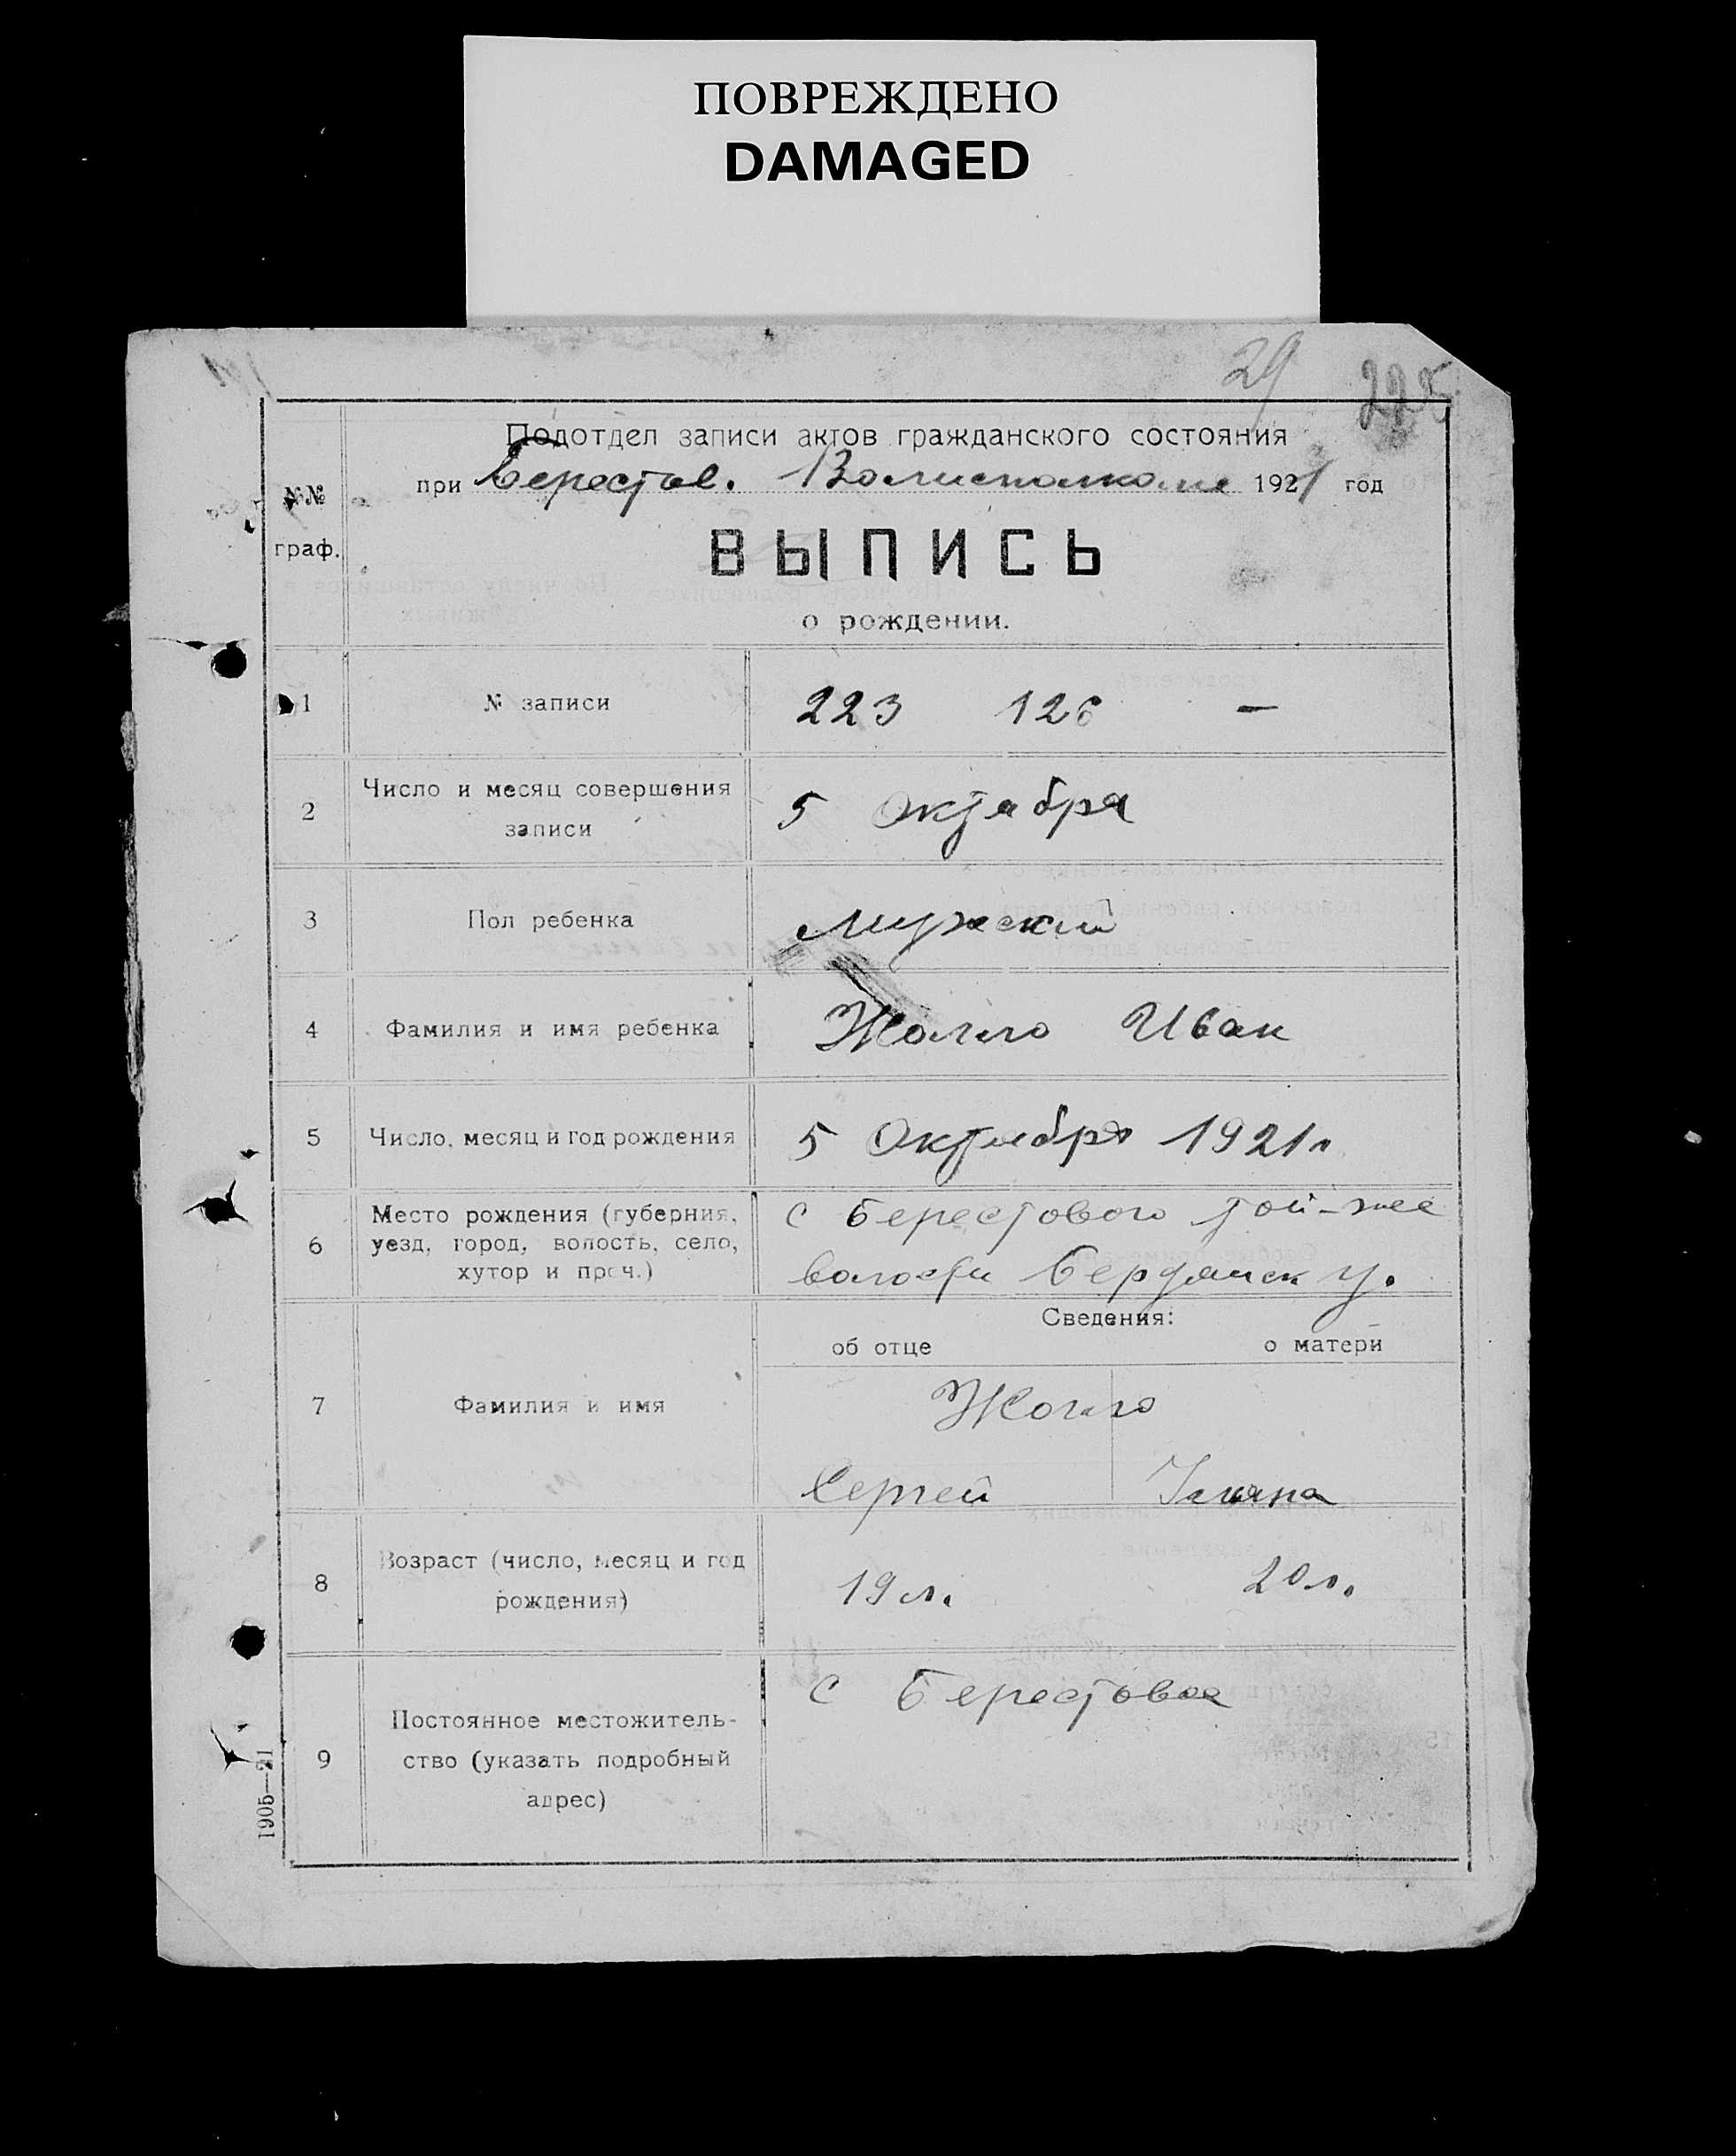 ПОВРЕЖДЕНО
DAMAGED
29 225
Подотдел записи актов гражданского состояния
при Берестов. Волисполкоме 1921 год
№№
граф.
ВЫПИСЬ
о рождении.
1 № записи 223 126 —
2 Число и месяц совершения
записи 5 Октября
3 Пол ребенка мужской
4 Фамилия и имя ребенка Иван
5 Число, месяц и год рождения 5 Октября 1921 г
6 Место рождения (губерния,
уезд, город, волость, село,
хутор и проч.)
с Берестового той-же
волости Бердянск у.
Сведения:
об отце о матери
7 Фамилия и имя
Сергей
8 Возраст (число, месяц и год
рождения)
19 л. 20 л.
9 Постоянное местожитель-
ство (указать подробный
адрес)
с Берестовое
1905—21